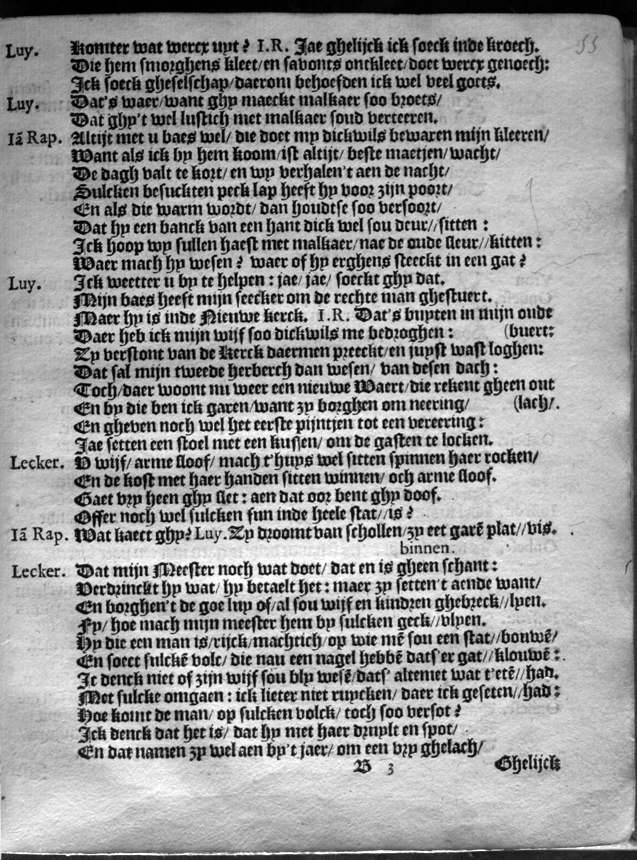 55
Luy. Komter wat wercx uyt? I.R. Jae ghelijck ick soeck inde kroech.
Die hem smorghens kleet/en savonts ontkleet/doet wercx genoech:
Ick soeck gheselschap/daerom behoefden ick wel veel goets.
Luy. Dat's waer/want ghy maeckt malkaer soo broets/
Dat ghy't wel lustich met malkaer soud verteeren.
Iã Rap. Altijt met u baes wel/ die doet my dickwils bewaren mijn kleeren/
Want als ick by hem koom/ist altijt/ beste maetjen/wacht/
De dagh valt te kort/ en wy verhalen't aen de nacht/
Sulcken besuckten peck lap heeft hy voor zijn poort/
En als die warm wordt/ dan houdtse soo versoort/
Dat hy een banck van een hant dick wel sou deur//sitten:
Ick hoop wy sullen haest met malkaer/nae de oude fleur//kitten:
Waer mach hy wesen? waer of hy erghens steeckt in een gat?
Luy. Ick weetter u by te helpen: jae/ jae/ soeckt ghy dat.
Mijn baes heeft mijn seecker om de rechte man ghestuert.
Maer hy is inde Nieuwe kerck. I.R. Dat's buyten in mijn oude
Daer heb ick mijn wijf soo dickwils me bedroghen: (buert:
Zy verstont van de Kerck daermen preeckt/en juyst wast loghen:
Dat sal mijn tweede herberch dan wesen/ van desen dach:
Toch/daer woont nu weer een nieuwe Waert/die rekent gheen out
En by die ben ick garen/want zy borghen om neering/ (lach/.
En gheven noch wel het eerste pijntjen tot een vereering:
Jae setten een stoel met een kussen/ om de gasten te locken.
Lecker. U wijf/ arme sloof/ mach t'huys wel sitten spinnen haer rocken/
En de kost met haer handen sitten winnen/ och arme sloof.
Gaet vry heen ghy slet: aen dat oor bent ghy doof.
Offer noch wel sulcken fun inde heele stat//is?
Iã Rap. Wat kaect ghy? Luy. Zy droomt van schollen/zy eet garẽ plat//vis.
binnen.
Lecker. Dat mijn Meester noch wat doet/ dat en is gheen schant:
Verdrinckt hy wat/ hy betaelt het: maer zy setten't aende want/
En borghen't de goe luy of/al sou wijf en kindren ghebreck//lyen.
Fy/ hoe mach mijn meester hem by sulcken geck/vlyen.
Hy die een man is/rijck/machtich/op wie mẽ sou een stat//bouwẽ/
En soect sulckẽ volc/ die nau een nagel hebbẽ dats'er gat//klouwẽ:
Ic denck niet of zijn wijf sou bly wesẽ/dats' altemet wat t'etẽ//had.
Met sulcke omgaen: ick lieter niet ruycken/ daer ick geseten//had:
Hoe komt de man/ op sulcken volck/ toch soo versot?
Ick denck dat het is/ dat hy met haer druylt en spot/
En dat namen zy wel aen by't jaer/ om een vry ghelach/
B 3 Ghelijck